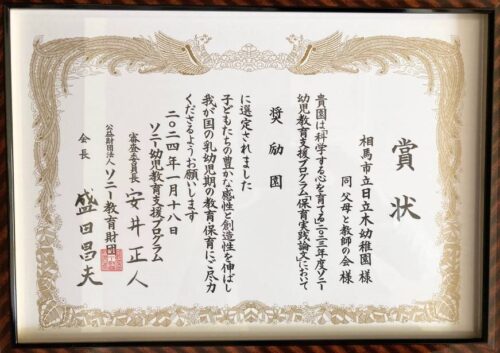 賞状
相馬市立日立木幼稚園 様
同 父母と教師の会 様
貴園は「科学する心を育てる」二〇二三年度ソニー
幼児教育支援プログラム「保育実践論文」において
奨励園
に選定されました
子どもたちの豊かな感性と創造性を伸ばし
我が国の乳幼児期の教育保育にご尽力
くださるようお願いします
二〇二四年一月十八日
ソニー幼児教育支援プログラム
審査委員長 安井正人
公益財団法人 ソニー教育財団
会長 盛田昌夫